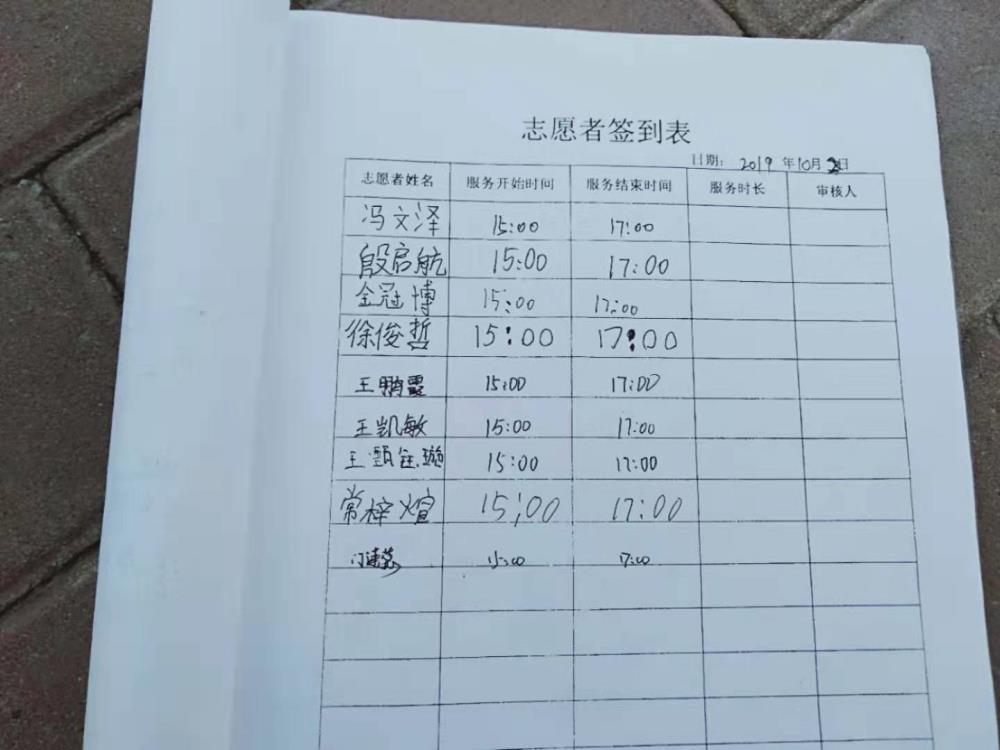 志愿者签到表
日期: 2019 年10月2日
志愿者姓名 服务开始时间 服务结束时间 服务时长 审核人
冯文泽 15:00 17:00
殷启航 15:00 17:00
金冠博 15:00 17:00
徐俊哲 15:00 17:00
王鹏霞 15:00 17:00
王凯敏 15:00 17:00
王 15:00 17:00
常梓煊 15:00 17:00
15:00 17:00